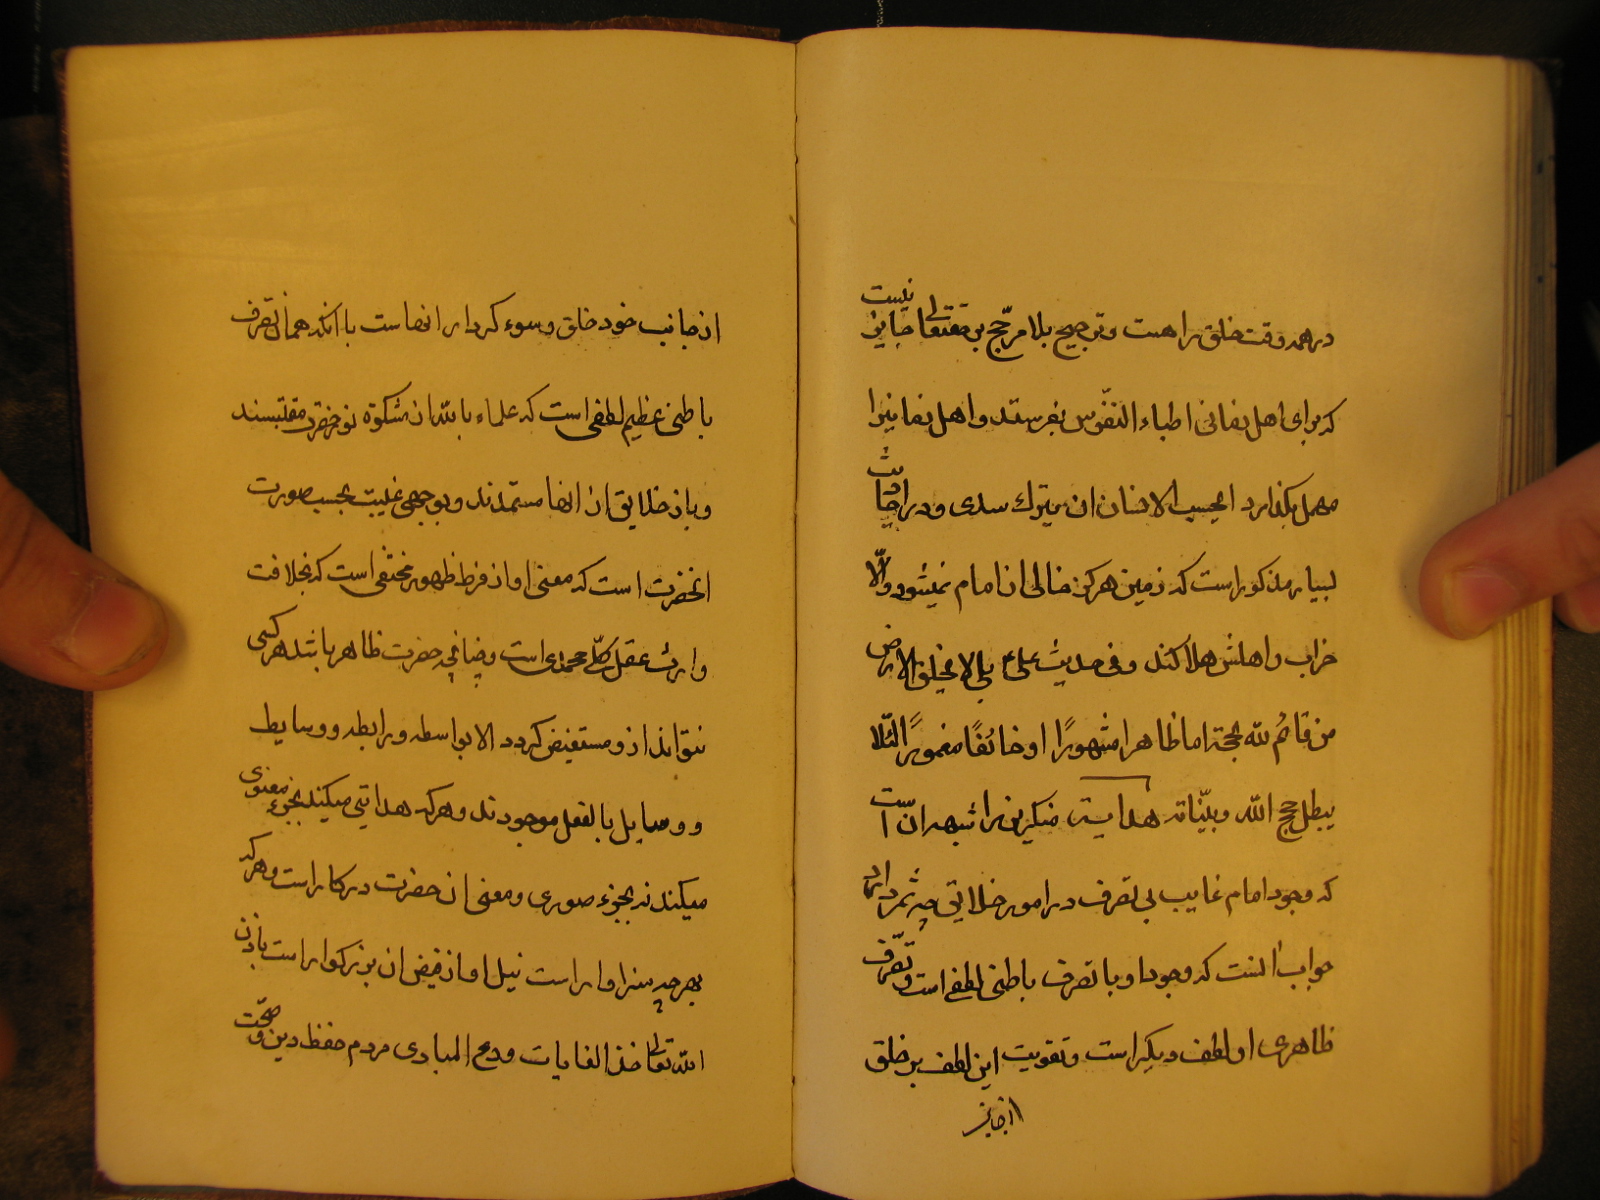 در همه وقت خلق را هست و ترجیح بلا مرجّح بر حقتعالی جایز نیست
که برای اهل یفانی اطباء النفوس بفرستد و اهل یفانیرا
مهمل بگذارد ایحسب الانسان ان یترک سدی و در احادیث
بسیار مذکور است که زمین هرکز خالی از امام نمیشود والّا
خراب و اهلش هلاکند و فی حدیث علی ع بلی لا یخلق الارض
من قائم لله بحجة اما ظاهرا مشهورًا او خائفًا مغمورًا لئلا
یبطل حجج الله و بیّناته هدایت منکرین را شبهه ان است
که وجود امام غایب بی تصرف در امور خلایق چه ثمر دارد
جواب انست که وجود او با تصرف باطنی لطفی است و تصّرف
ظاهری او لطف دیکر است و تقویت این لطف بر خلق
از جانب
از جانب خود خلق و سوء کردار انهاست با انکه همان تصرف
باطنی عظیم لطفی است که علماء بالله از مشکوة نور حضرت مقتبسند
و باز خلایق از انها مستمدند و بوجهی غیبت بحسب صورت
انحضرت است که معنی او از فرط ظهور مختفی است که بخلافت
وارث عقل کلّ محمدی است و چنانچه حضرت ظاهر باشد هر کسی
نتواند از و مستفیض کردد الا بواسطه و رابطه و وسایط
و وسایل بالفعل موجودند و هر که هدایتی میکند بجزء معنوی
میکند نه بجزء صوری و معنی ان حضرت در کار است و هر که
بهر چه سزاوار است نیل او از فیض ان بزرکوار است باذن
الله تعالی خذ الغایات ودع المبادی مردم حفظ دین و صحّت